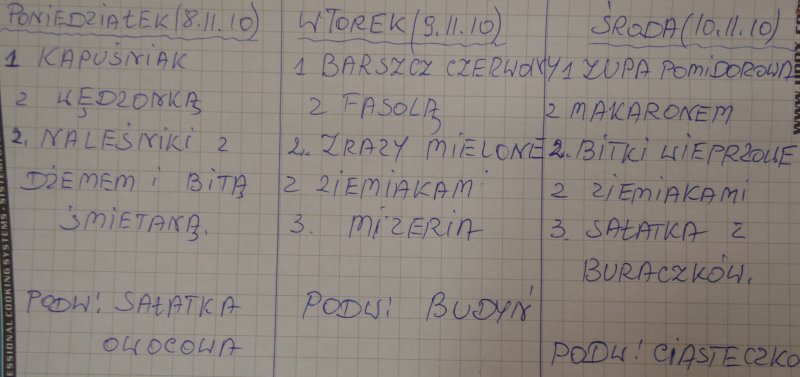 PONIEDZIAŁEK (8.11.10)
1 KAPUŚNIAK
Z WĘDZONKĄ
2. NALEŚNIKI Z
DŻEMEM I BITĄ
ŚMIETANĄ.
PODW: SAŁATKA
OWOCOWA
WTOREK (9.11.10)
1 BARSZCZ CZERWONY
Z FASOLĄ
2. ZRAZY MIELONE
Z ZIEMIAKAMI
3. MIZERIA
PODW: BUDYŃ
ŚRODA (10.11.10)
1 ZUPA POMIDOROWA
Z MAKARONEM
2. BITKI WIEPRZOWE
Z ZIEMIAKAMI
3. SAŁATKA Z
BURACZKÓW.
PODW: CIASTECZKO
ESSIONAL COOKING SYSTEMS - SISTEM